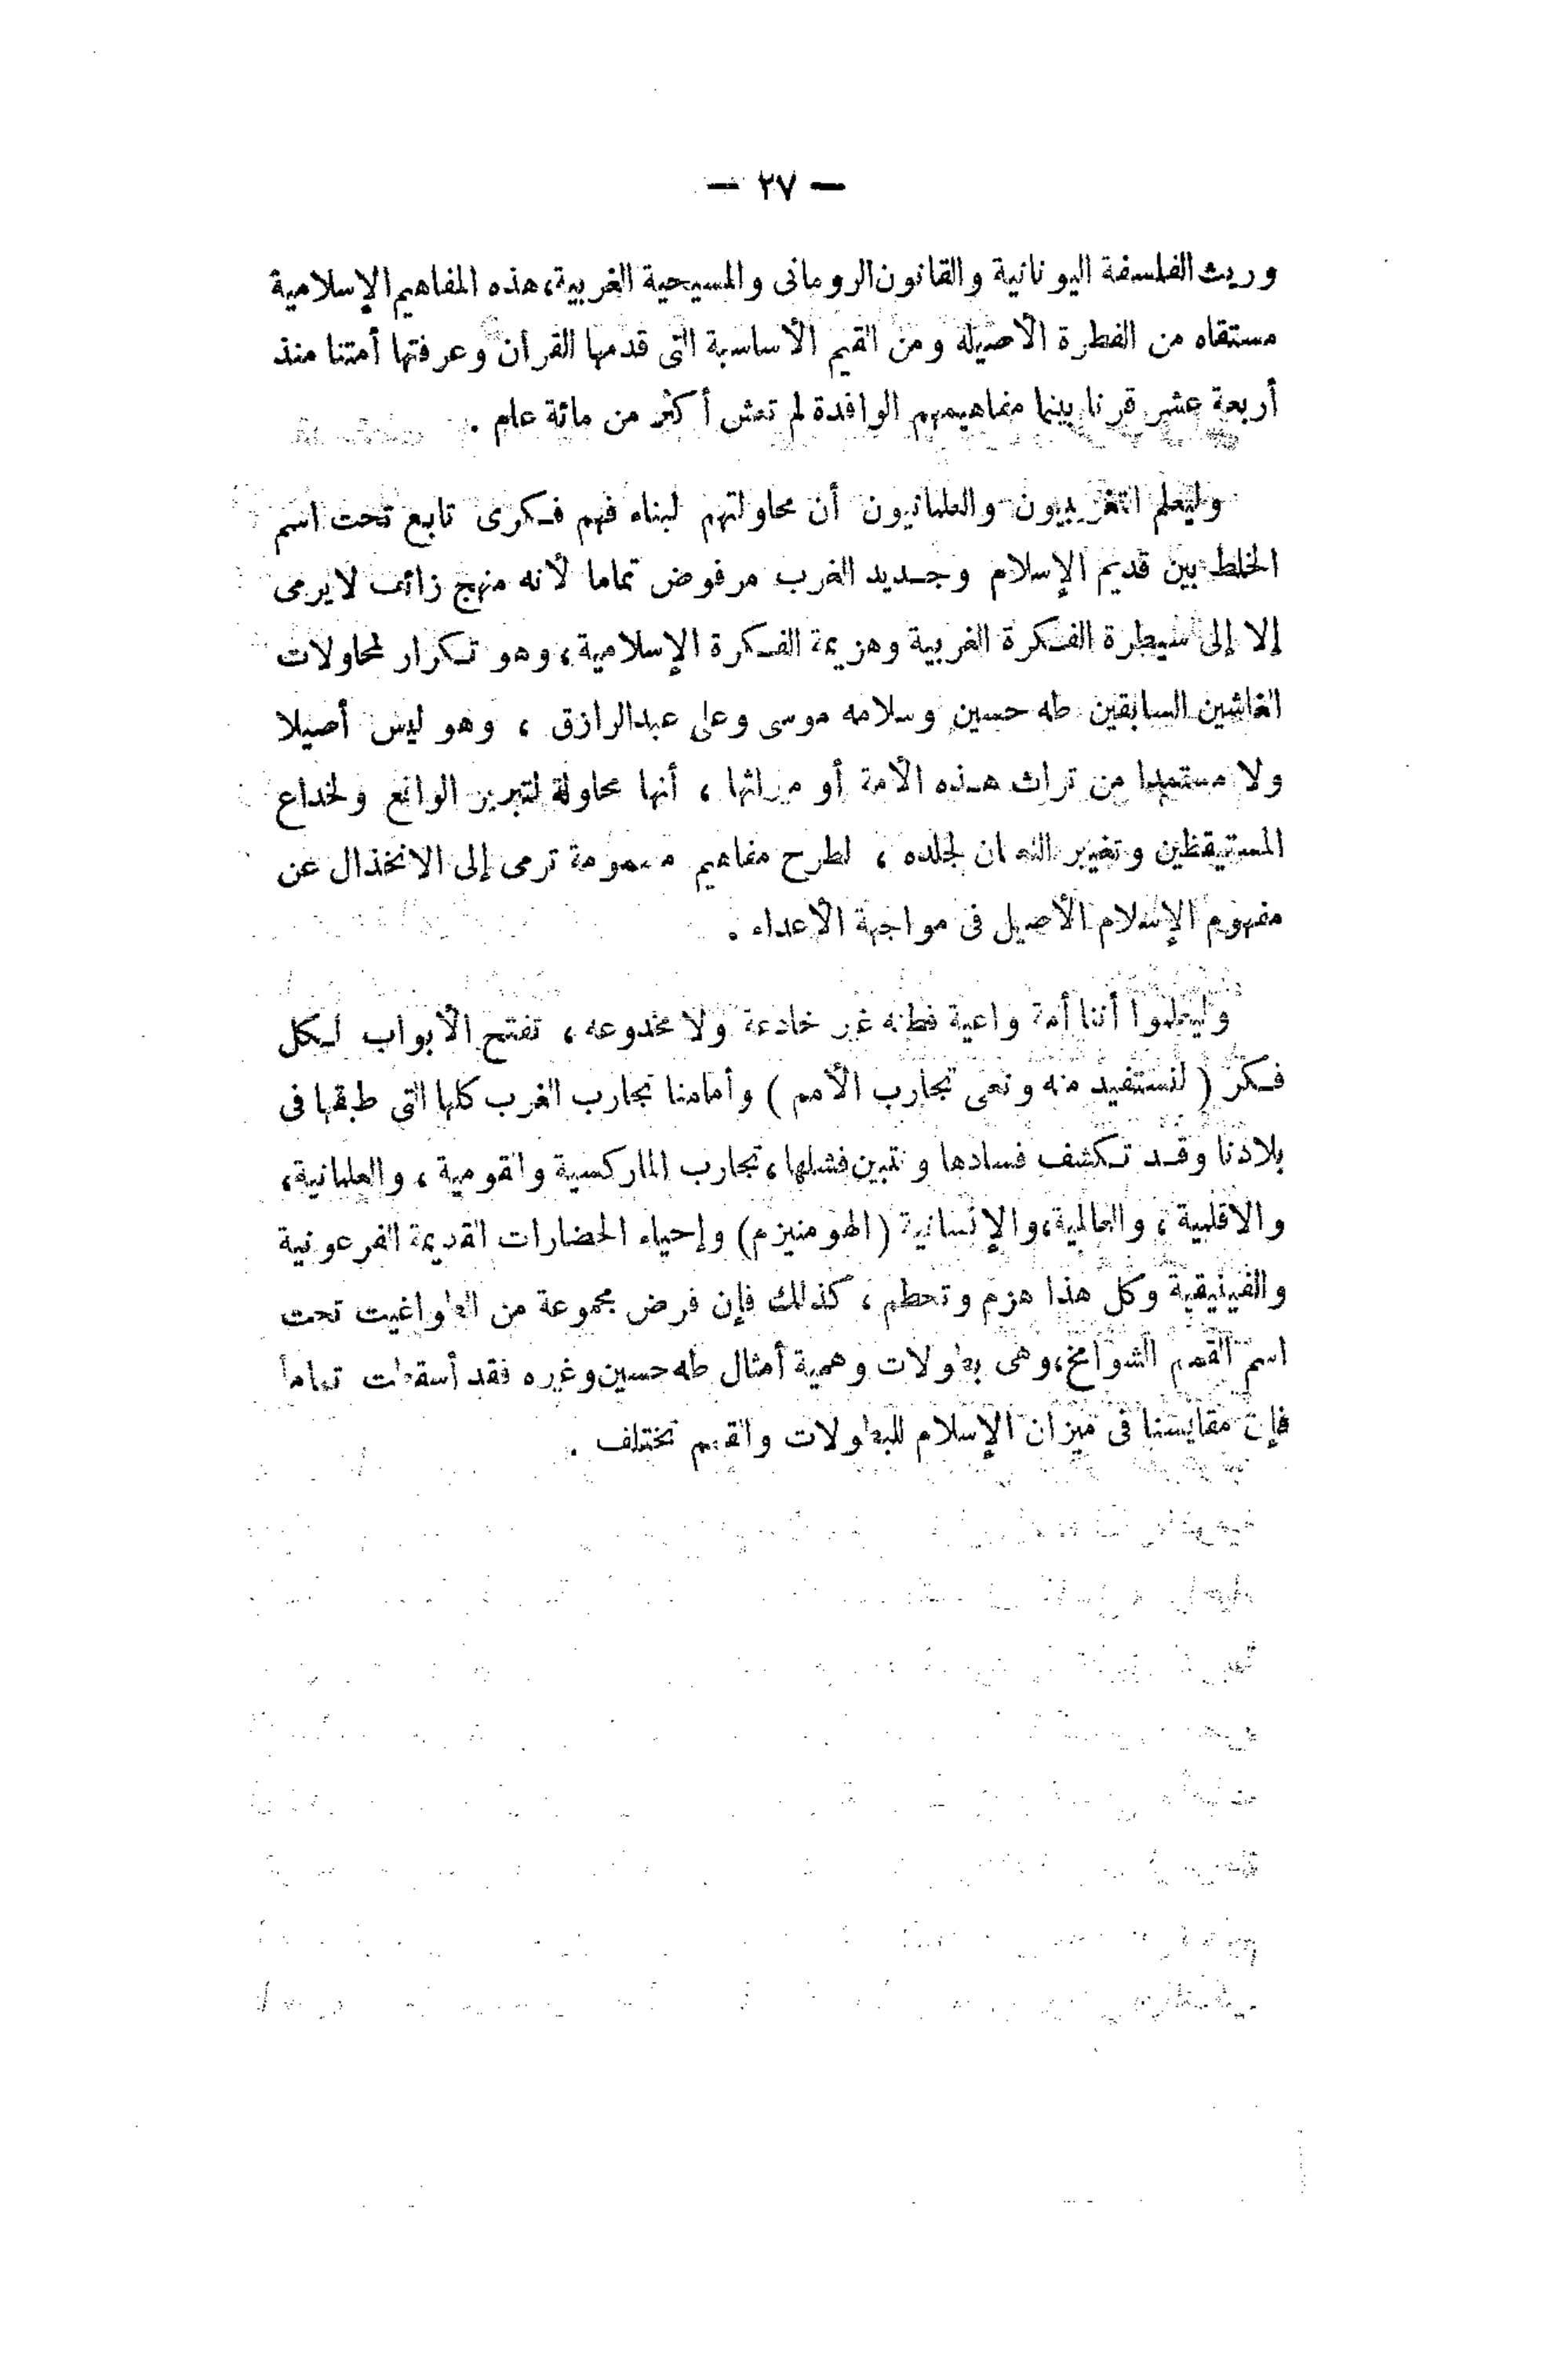 — ٢٧ —
وريث الفلسفة اليونانية والقانون الرومانى والمسيحية الغربية، هذه المفاهيم الإسلامية
مستقاه من الفطرة الأصيله ومن القيم الأساسية التى قدمها القرآن وعرفتها أمتنا منذ
أربعة عشر قرنا بينما مفاهيمهم الوافدة لم تعش أكثر من مائة عام .
وليعلم التغريبيون والعلمانيون أن محاولتهم لبناء فهم فكرى تابع تحت اسم
الخلط بين قديم الإسلام وجديد الغرب مرفوض تماما لأنه منهج زائف لا يرمى
إلا إلى سيطرة الفكرة الغربية وهزيمة الفكرة الإسلامية، وهو تكرار لمحاولات
الغاشين السابقين طه حسين وسلامه موسى وعلى عبد الرازق ، وهو ليس أصيلا
ولا مستمدا من تراث هذه الأمة أو ميراثها ، أنها محاولة لتبرير الواقع ولخداع
المستيقظين وتغيير الثعبان لجلده ، لطرح مفاهيم مسمومة ترمى إلى الانخذال عن
مفهوم الإسلام الأصيل فى مواجهة الأعداء .
وليعلموا أننا أمة واعية فطنه غير خادعة ولا مخدوعه ، تفتح الأبواب لكل
فكر ( لنستفيد منه ونعى تجارب الأمم ) وأمامنا تجارب الغرب كلها التى طبقها فى
بلادنا وقد تكشف فسادها وتبين فشلها ، تجارب الماركسية والقومية ، والعلمانية،
والاقليمية ، والعالمية، والإنسانية (الهومنيزم) وإحياء الحضارات القديمة الفرعونية
والفينيقية وكل هذا هزم وتحطم ، كذلك فإن فرض مجموعة من الطواغيت تحت
اسم القمم الشوامخ، وهى بطولات وهمية أمثال طه حسين وغيره فقد أسقطت تماما
فإن مقايسنا فى ميزان الإسلام للبطولات والقيم تختلف .